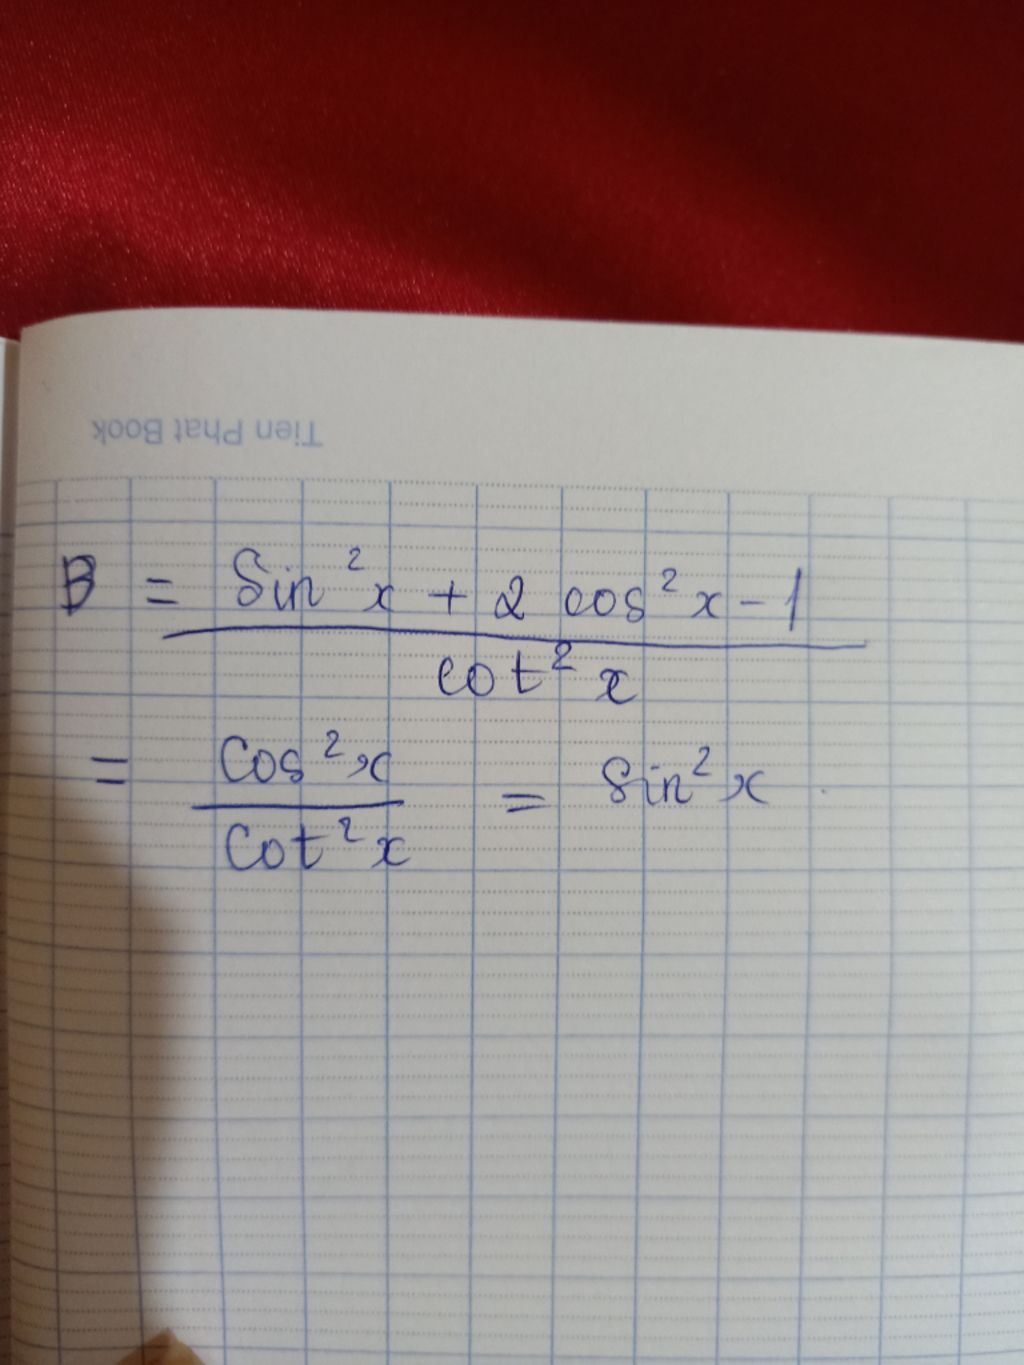 Tien Phat Book
B = Sin²x + 2 cos²x - 1
cot²x
= Cos²x = Sin²x
Cot²x